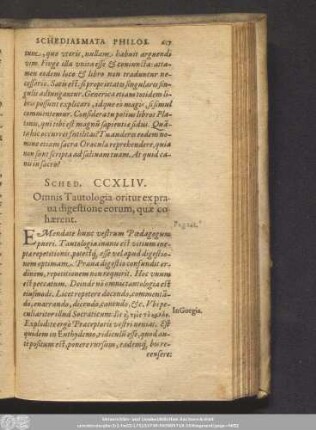 SCHEDIASMATA PHILOS.
tunc, quæ veris, nullam habuit arguendi
vim Finge illa vnita esse & coniuncta: atta-
men eodem loco & libro non traduntur ne-
cessariò. Satis est, si proprietates singulares sin-
gulis adiungantur. Generica etiam totidem li-
bris possint explicari, idque eò magis, si simul
commutentur. Considerato potius libros Pla-
tonis, qui tibi est magnus sapientiæ sidus.
to hic occurres Tu andem eodem no-
mine etiam sacra Oracula reprehendere, quia
non sunt scripta ad tuam. At quid ca-
ni in sacro?
SCHED. CCXLIV.
Omnis Tautologia oritur ex pra-
ua digestione eorum, quæ co-
hærent.
EMendate hunc vestrum Pædagogum
pueri. Tautologia inanis est vitium
repetitionis, potestque esse vel apud digestio-
nem optimam. Praua digestio confundit or-
dinem, repetitionem non requirit. Hoc vnum
est peccatum. Deinde nō omnis tautologia est
eiusmodi. Licet repetere docendo, commenda-
do, enarrando, dicendo, canendo, &c. Vti pe-
culiariter illud Socraticum:
In Gorgia.
Explodite ergò Præceptoris vestri nenias. Est
quidem in Euthydemo, ridiculū esse, quod an-
te positum est, ponere rursum, eademque, bis re-
censere: